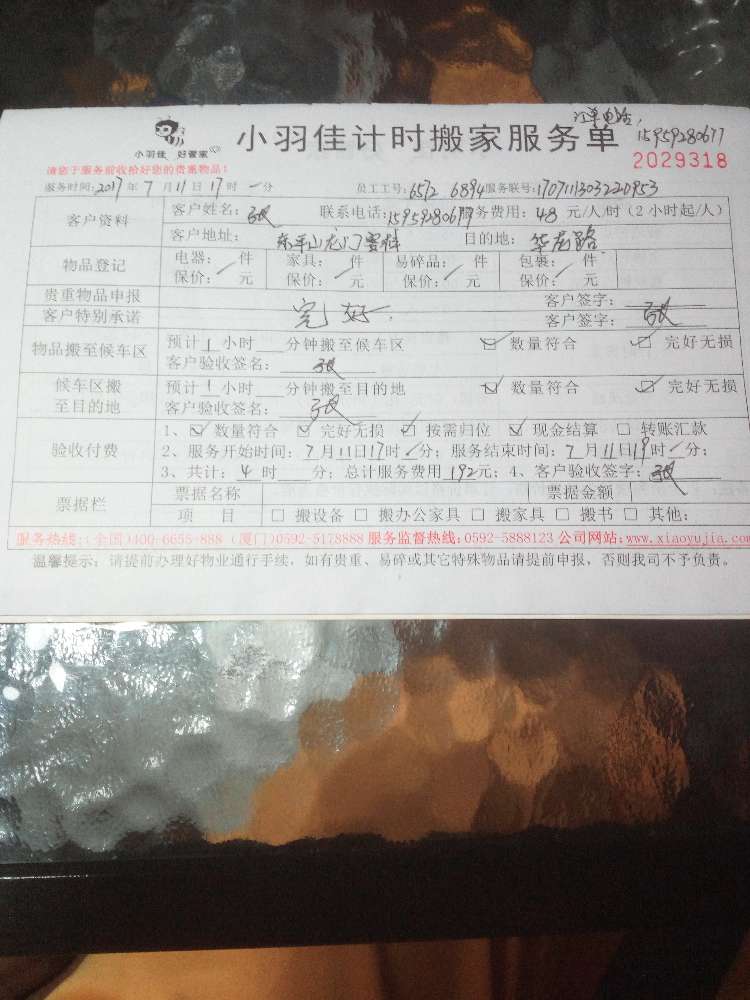 订单电话:
小羽佳 好管家
小羽佳计时搬家服务单 15959280677
2029318
请您于服务前收拾好您的贵重物品!
服务时间:2017年7月11日17时 一分 员工工号:6572 6894 服务联号:170711303220953
客户资料
客户姓名:张 联系电话:15959280677 服务费用:48 元/人/时(2小时起/人)
客户地址: 目的地:
物品登记
电器: 件 家具: 件 易碎品: 件 包裹: 件
保价: 元 保价: 元 保价: 元 保价: 元
贵重物品申报 客户签字:
完好
客户特别承诺 客户签字:张
物品搬至候车区
预计1小时 分钟搬至候车区 ☑数量符合 ☑完好无损
客户验收签名:张
候车区搬至目的地
预计1小时 分钟搬至目的地 ☑数量符合 ☑完好无损
客户验收签名:张
验收付费
1、☑数量符合 ☑完好无损 ☑按需归位 ☑现金结算 □转账汇款
2、服务开始时间:7月11日17时 分;服务结束时间:7月11日19时 分;
3、共计:4时 分;总计服务费用192元;4、客户验收签字:张
票据栏
票据名称 票据金额
项 目 □搬设备 □搬办公家具 □搬家具 □搬书 □其他:
服务热线:(全国)400-6655-888 (厦门)0592-5178888 服务监督热线:0592-5888123 公司网站:www.xiaoyujia.com
温馨提示:请提前办理好物业通行手续,如有贵重、易碎或其它特殊物品请提前申报,否则我司不予负责。